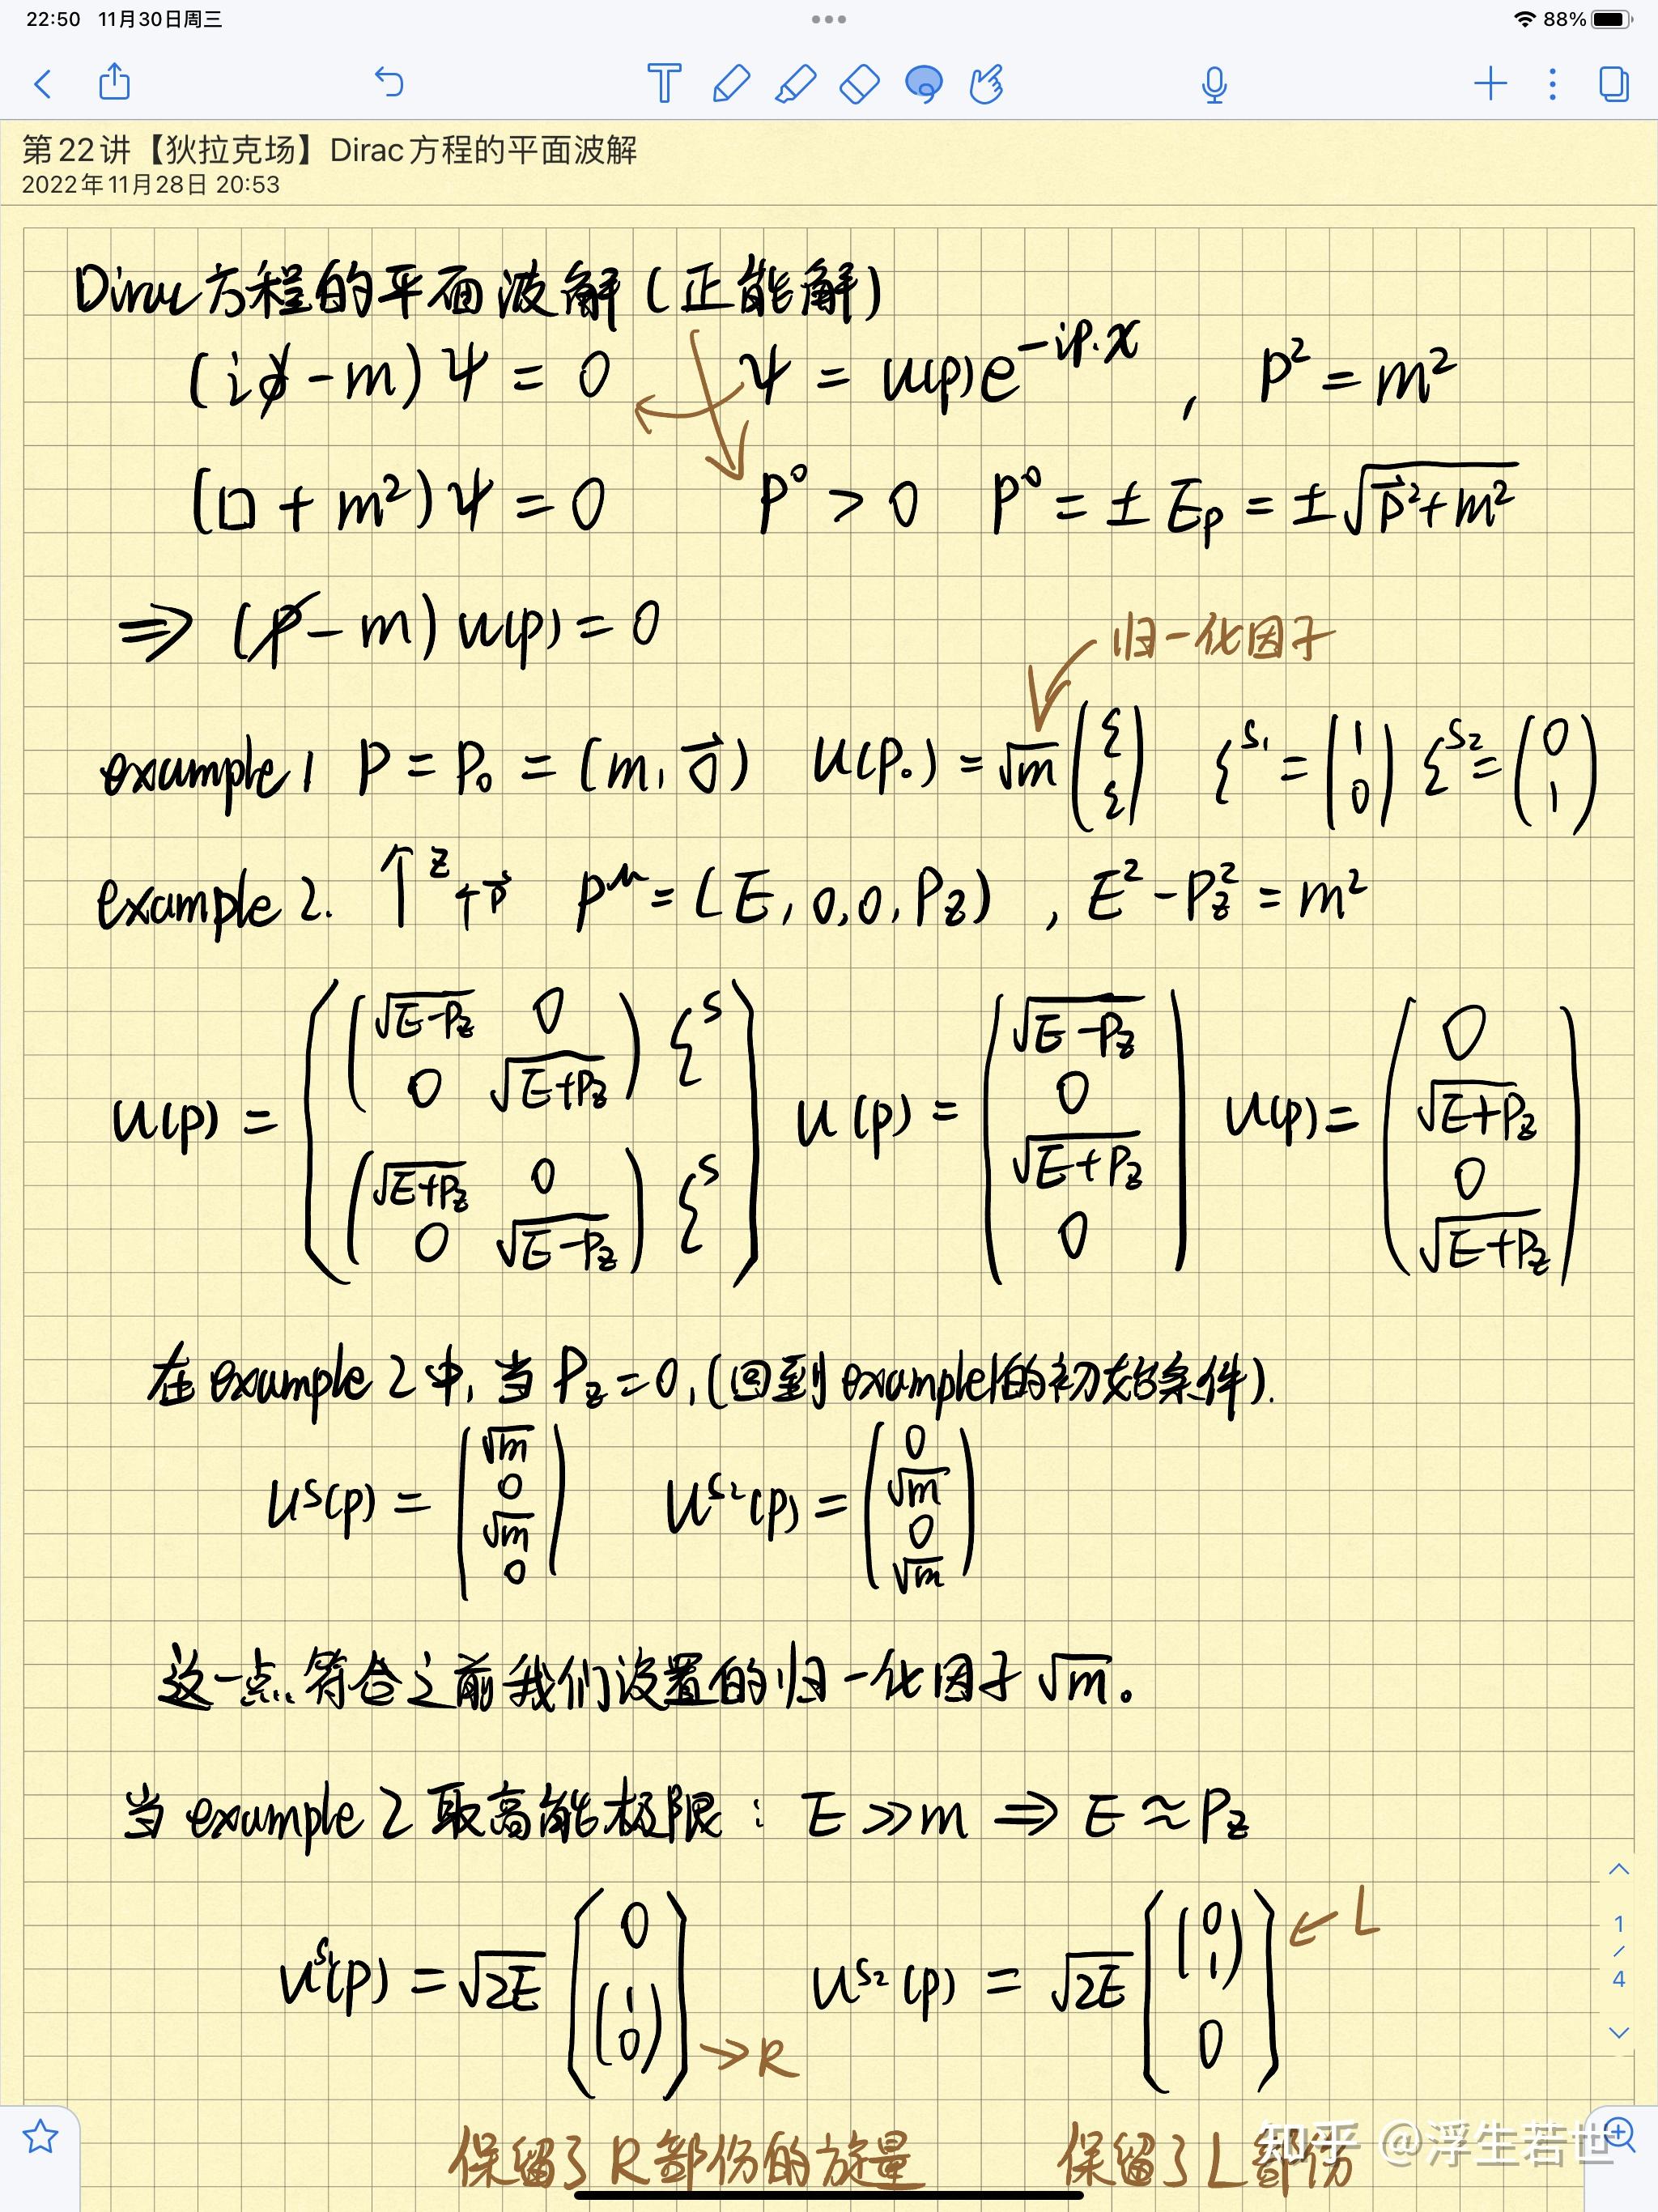 22:50 11月30日周三 88%
第22讲【狄拉克场】Dirac方程的平面波解
2022年11月28日 20:53
Dirac方程的平面波解(正能解)
(i∂̸ - m) ψ = 0 ψ = u(p)e^{-ip·x} , p² = m²
(□ + m²) ψ = 0 p⁰ > 0 p⁰ = ± E_p = ± √(p⃗²+m²)
⇒ (p̸ - m) u(p) = 0
归一化因子
example 1 P = P₀ = (m, 0⃗) U(P₀) = √m (ξ ξ) ξ^{s₁} = (1 0) ξ^{s₂} = (0 1)
example 2. ↑z ↑p⃗ p^μ = (E, 0, 0, P_z) , E² - P_z² = m²
u(p) = ((√(E-P_z) 0 0 √(E+P_z)) ξ^s (√(E+P_z) 0 0 √(E-P_z)) ξ^s) u(p) = (√(E-P_z) 0 √(E+P_z) 0) u(p) = (0 √(E+P_z) 0 √(E+P_z))
在example 2中, 当 P_z = 0, (回到example1的初始条件).
u^s(p) = (√m 0 √m 0) u^{s₂}(p) = (0 √m 0 √m)
这一点符合之前我们设置的归一化因子 √m。
当 example 2 取高能极限: E ≫ m ⇒ E ≈ P_z
u^{s₁}(p) = √2E (0 (1 0)) → R u^{s₂}(p) = √2E ((0 1) 0) ← L
1/4
保留了R部份的旋量 保留了L部份
知乎 @浮生若世